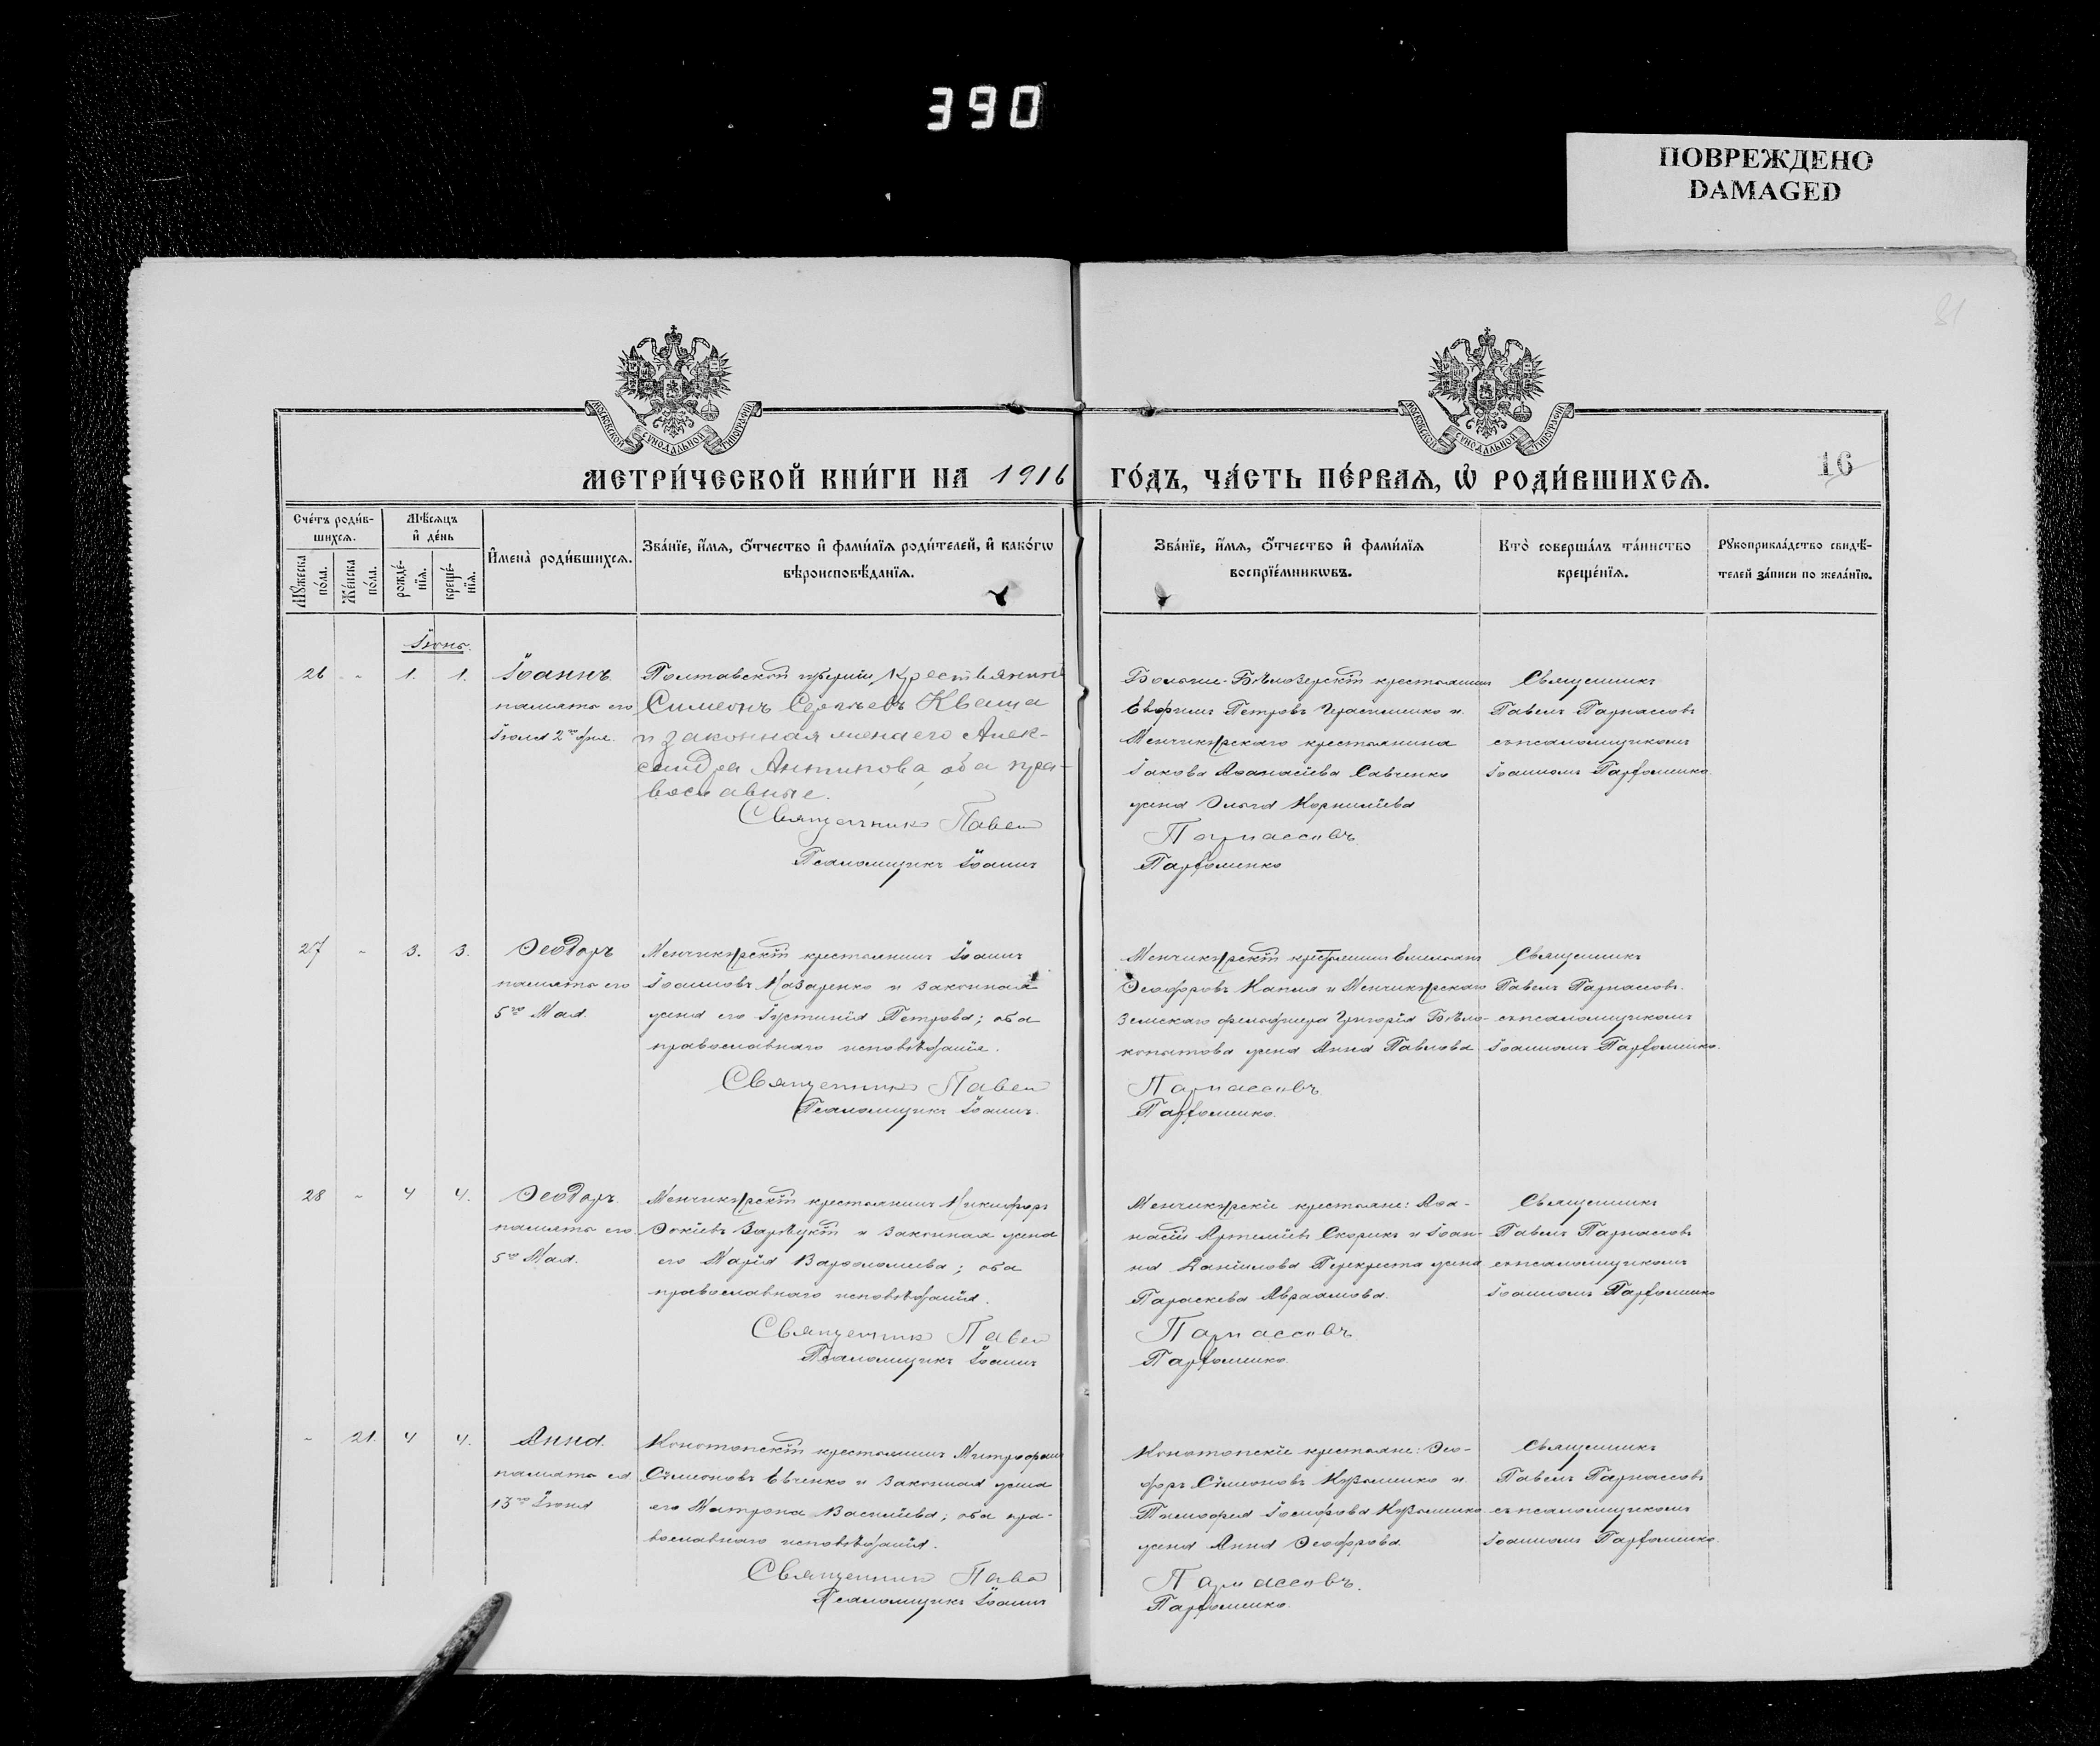 390
ПОВРЕЖДЕНО
DAMAGED
81
МОСКОВСКОЙ СѴНОДАЛЬНОЙ ТИПОГРАФІИ
МОСКОВСКОЙ СѴНОДАЛЬНОЙ ТИПОГРАФІИ
МЕТРИ́ЧЕСКОЙ КНИ́ГИ НА 1916 ГО́ДЪ, ЧА́СТЬ ПЕ́РВАѦ, Ѡ҆ РОДИ́ВШИХСѦ.
16
Сче́тъ роди́в-
шихсѧ.
Мꙋ́жеска по́ла.
Же́нска по́ла.
Мѣ́сѧцъ
и҆ де́нь
рожде́-
нїѧ.
креще́-
нїѧ.
И҆мена̀ роди́вшихсѧ.
Зва́нїе, и҆́мѧ, ѻ҆́тчество и҆ фами́лїѧ роди́телей, и҆ како́гѡ
вѣроисповѣ́данїѧ.
Зва́нїе, и҆́мѧ, ѻ҆́тчество и҆ фами́лїѧ
воспрїе́мникѡвъ.
Кто̀ соверша́лъ та́инство
креще́нїѧ.
Рꙋкоприкла́дство свидѣ́-
телей за́писи по жела́нїю.
Іюнь.
26 - 1. 1.
Іоаннъ
память его
Іюля 2го дня.
Полтавской губерніи крестьянинъ
Симеонъ Сергѣевъ Кваша
и законная жена его Алек-
сандра Антипова, оба пра-
вославные.
Священникъ Павел
Псаломщикъ Іоаннъ
Больше-Бѣлозерскій крестьянинъ
Евфимъ Петровъ Герасименко и
Менчикурскаго крестьянина
Іакова Аѳанасіева Савченко
жена Ольга Корниліева
Парнассовъ
Парфоменко
Священникъ
Павелъ Парнассовъ
съ псаломщикомъ
Іоанномъ Парфоменко.
27 - 3. 3.
Ѳеодоръ
память его
5го Мая.
Менчикурскій крестьянинъ Іоаннъ
Іоанновъ Назаренко и законная
жена его Іустинія Петрова; оба
православнаго исповѣданія.
Священникъ Павел
Псаломщикъ Іоаннъ.
Менчикурскій крестьянинъ Емельянъ
Ѳеодоровъ Капля и Менчикурскаго
Земскаго фельдшера Григорія Бѣло-
копытова жена Анна Павлова
Парнассовъ
Парфоменко.
Священникъ
Павелъ Парнассовъ.
съ псаломщикомъ
Іоанномъ Парфоменко.
28 - 4 4.
Ѳеодоръ.
память его
5го Мая.
Менчикурскій крестьянинъ Никифоръ
Ѳокіевъ Зарѣцкій и законная жена
его Марія Варѳоломеева; оба
православнаго исповѣданія.
Священник Павел
Псаломщикъ Іоаннъ
Менчикурскіе крестьяне: Аѳа-
насій Артеміевъ Скорикъ и Іоан-
на Даніилова Перекреста жена
Параскева Авраамова.
Парнассовъ
Парфоменко.
Священникъ
Павелъ Парнассовъ
съ псаломщикомъ
Іоанномъ Парфоменко
- 21. 4 4.
Анна.
память ея
13го Іюня
Конотопскій крестьянинъ Митрофанъ
Сѵмеоновъ Евченко и законная жена
его Матрона Василіева; оба пра-
вославнаго исповѣданія.
Священник Павел
Псаломщикъ Іоаннъ
Конотопскіе крестьяне: Ѳео-
доръ Сѵмеоновъ Кузьменко и
Тимофея Іосифова Кузьменко
жена Анна Ѳеодорова.
Парнассовъ.
Парфоменко.
Священникъ
Павелъ Парнассовъ
съ псаломщикомъ
Іоанномъ Парфоменко.